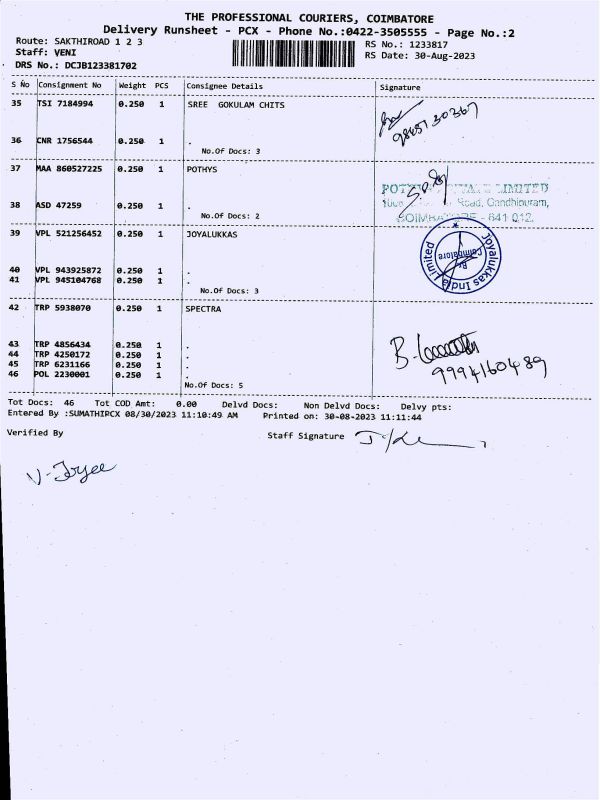 THE PROFESSIONAL COURIERS, COIMBATORE
Delivery Runsheet - PCX - Phone No.:0422-3505555 - Page No.:2
Route: SAKTHIROAD 1 2 3
RS No.: 1233817
Staff: VENI
RS Date: 30-Aug-2023
DRS No.: DCJB123381702
S No Consignment No Weight PCS Consignee Details Signature
35 TSI 7184994 0.250 1 SREE GOKULAM CHITS
36 CNR 1756544 0.250 1 .
No.Of Docs: 3
37 MAA 860527225 0.250 1 POTHYS
LIMITED
38 ASD 47259 0.250 1 .
Road, Gandhipuram,
No.Of Docs: 2
641 012.
39 VPL 521256452 0.250 1 JOYALUKKAS
Joyalukkas India Limited
Coimbatore
40 VPL 943925872 0.250 1 .
41 VPL 945104768 0.250 1 .
No.Of Docs: 3
42 TRP 5938070 0.250 1 SPECTRA
43 TRP 4856434 0.250 1 .
44 TRP 4250172 0.250 1 .
45 TRP 6231166 0.250 1 .
46 POL 2230001 0.250 1 .
9994160489
No.Of Docs: 5
Tot Docs: 46 Tot COD Amt: 0.00 Delvd Docs: Non Delvd Docs: Delvy pts:
Entered By :SUMATHIPCX 08/30/2023 11:10:49 AM Printed on: 30-08-2023 11:11:44
Verified By
Staff Signature